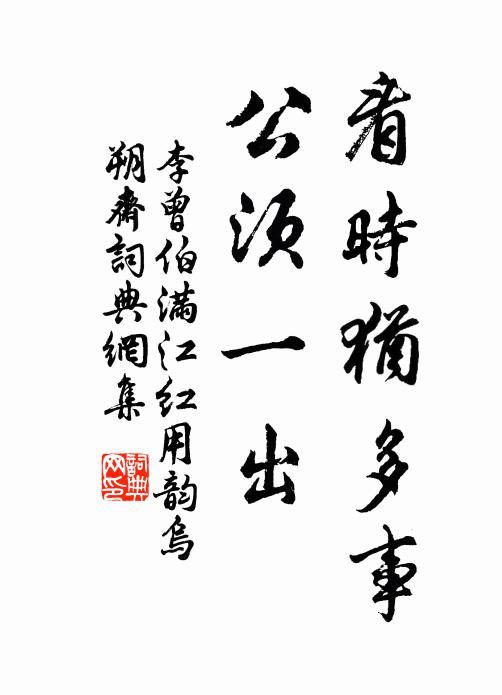 看時猶多事
公須一出
李曾伯滿江紅用韵烏
朔齋詞典網集
詞典
网印